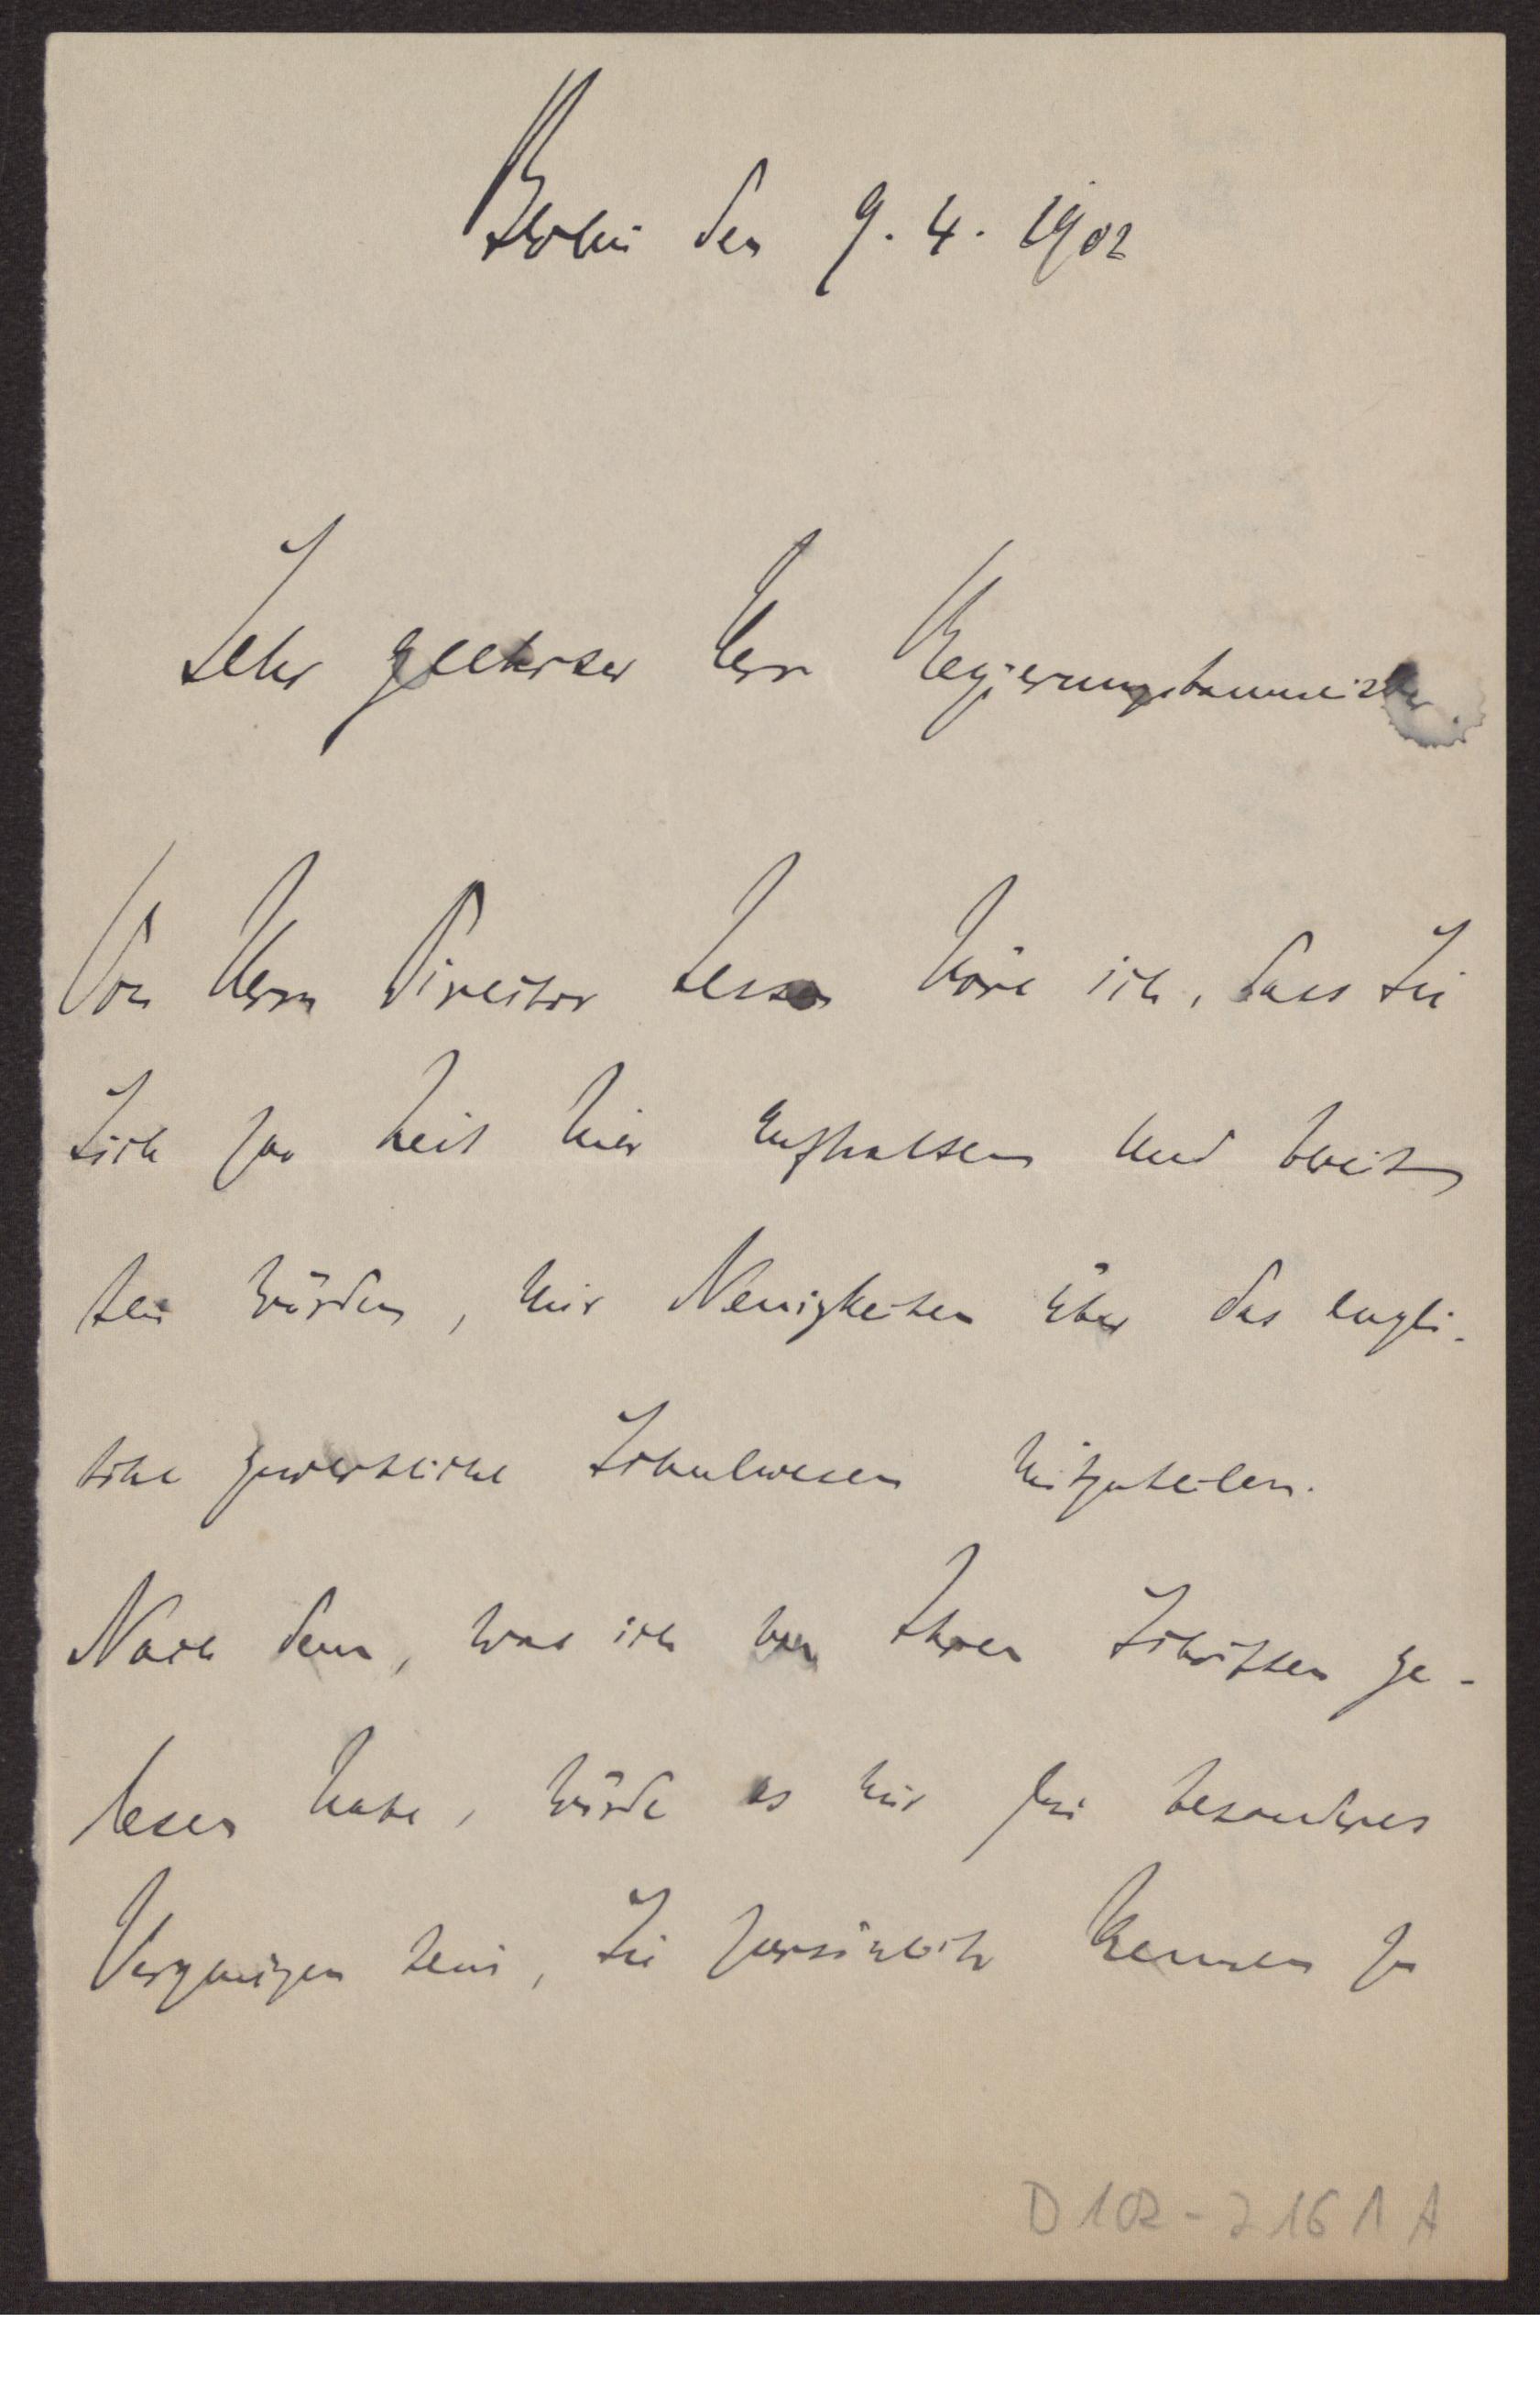 Berlin den 9. 4. 1902
Sehr geehrter Herr Regierungsbaumeister.
Von Herrn Director Jessen höre ich, dass Sie
Sich zur Zeit hier aufhalten und bereit
sein würden, mir Neuigkeiten über das engli-
sche gewerbliche Schulwesen mitzuteilen.
Nach dem, was ich von Ihren Schriften ge-
lesen habe, würde es mir ein besonderes
Vergnügen sein, Sie persönlich kennen zu
D 102 - 2161 A